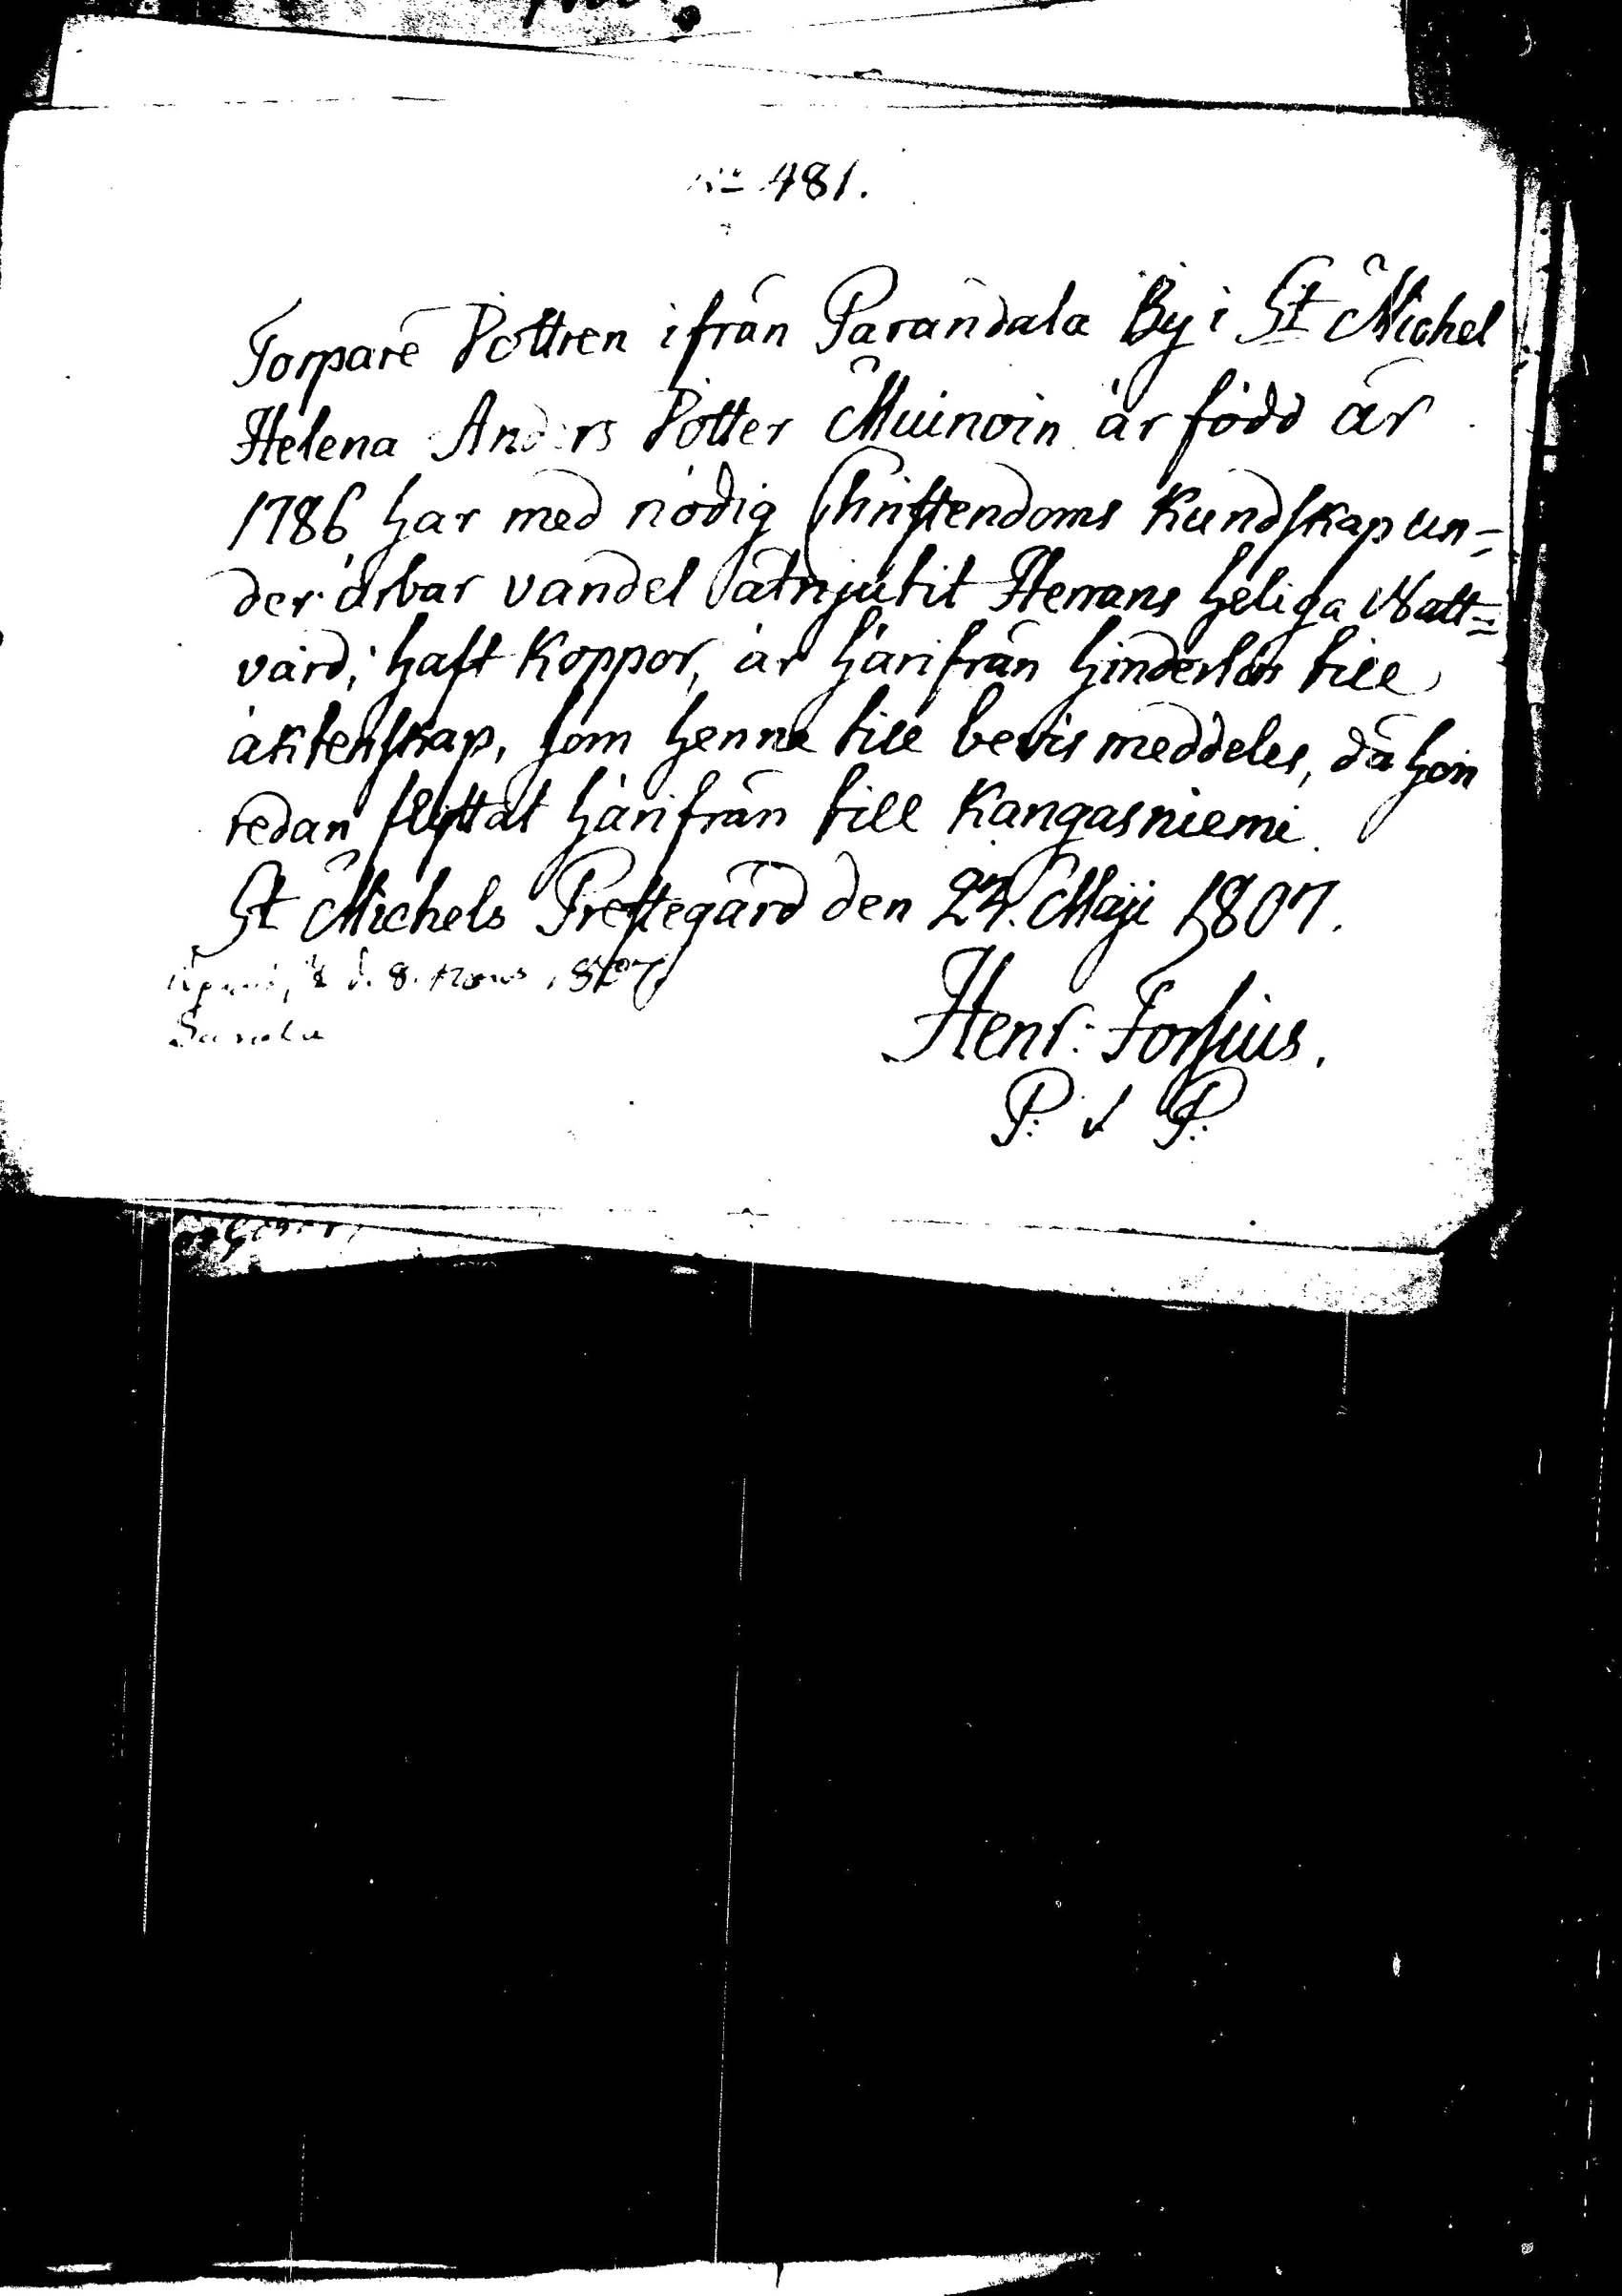 No 481.
Torpare Dottren ifrån Parandala By i St Michel
Helena Anders Dotter Muinoin är född år
1786, har med nödig Christendoms Kundskap un=
der ärbar vandel åtnjutit Herrans heliga Natt=
vard; haft Koppor, är härifrån hinderlös till
äktenskap, som henne till bevis meddeles, då hon
redan flyttat härifrån till Kangasniemi
St Michels Prestegård den 24. Maji 1807.
d. 8. 1807
Henr: Forsius.
P: P: